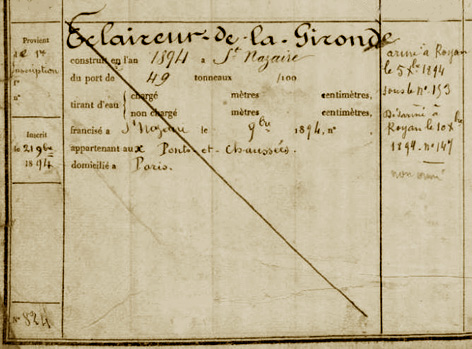 Provient
de 1re
inscription
f°
n°
Inscrit
le 21 9bre
1894
N° 824
Eclaireur-de-la-Gironde
construit en l'an 1894 à St Nazaire
du port de 49 tonneaux /100
tirant d'eau { chargé mètres centimètres,
non chargé mètres centimètres,
francisé à St Nazaire le 9bre 1894, n°
appartenant aux Ponts-et-Chaussées.
domicilié à Paris.
armé à Royan
le 5 Xbre 1894
sous le n° 153
Désarmé à
Royan le 10 Xbre
1894 - n° 147
non armé